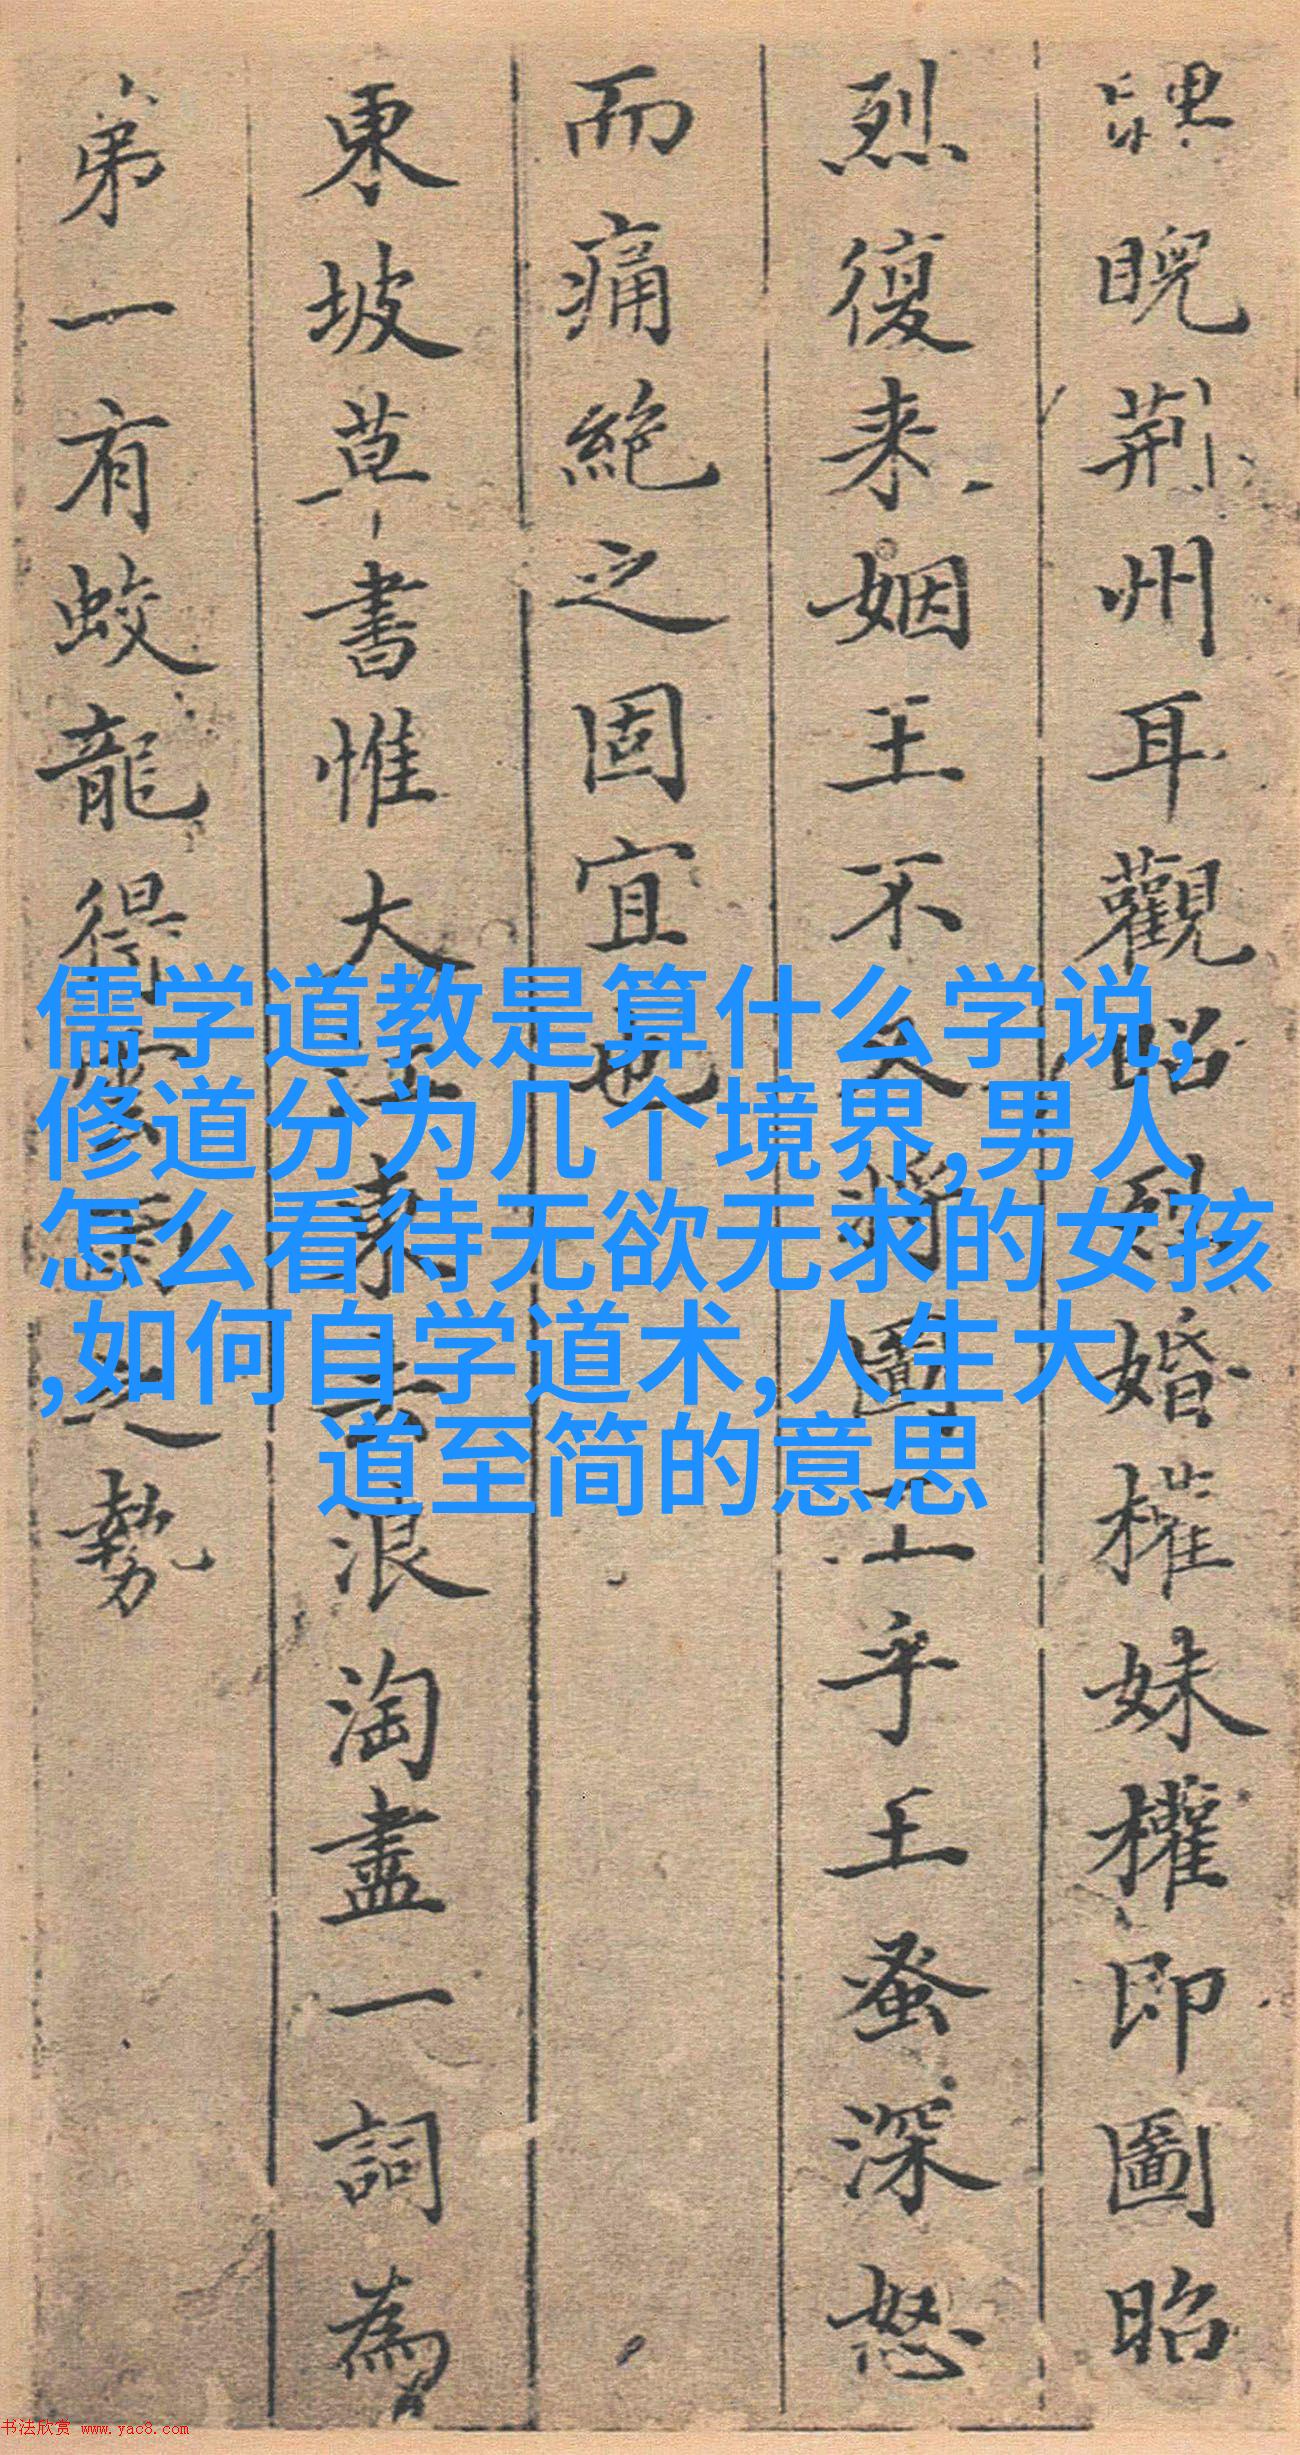 睨荊州耳觀昭烈婚權妹權即圖昭
烈復来姻王不久將圖王乎王蚤深怒
而痛絶之固宜也
東坡草書惟大江東去浪淘盡一詞為
弟一有蛟龍得雲雨之勢
儒学道教是算什么学说,
修道分为几个境界,男人
怎么看待无欲无求的女孩
,如何自学道术,人生大
道至简的意思
书法欣赏 www.yac8.com